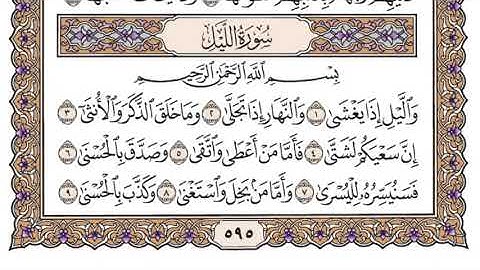 سُورَةُ اللَّيْلِ
بِسْمِ اللَّهِ الرَّحْمَٰنِ الرَّحِيمِ
وَالَّيْلِ إِذَا يَغْشَىٰ ١ وَالنَّهَارِ إِذَا تَجَلَّىٰ ٢ وَمَا خَلَقَ الذَّكَرَ وَالْأُنثَىٰ ٣
إِنَّ سَعْيَكُمْ لَشَتَّىٰ ٤ فَأَمَّا مَنْ أَعْطَىٰ وَاتَّقَىٰ ٥ وَصَدَّقَ بِالْحُسْنَىٰ ٦
فَسَنُيَسِّرُهُ لِلْيُسْرَىٰ ٧ وَأَمَّا مَنْ بَخِلَ وَاسْتَغْنَىٰ ٨ وَكَذَّبَ بِالْحُسْنَىٰ ٩
٥٩٥